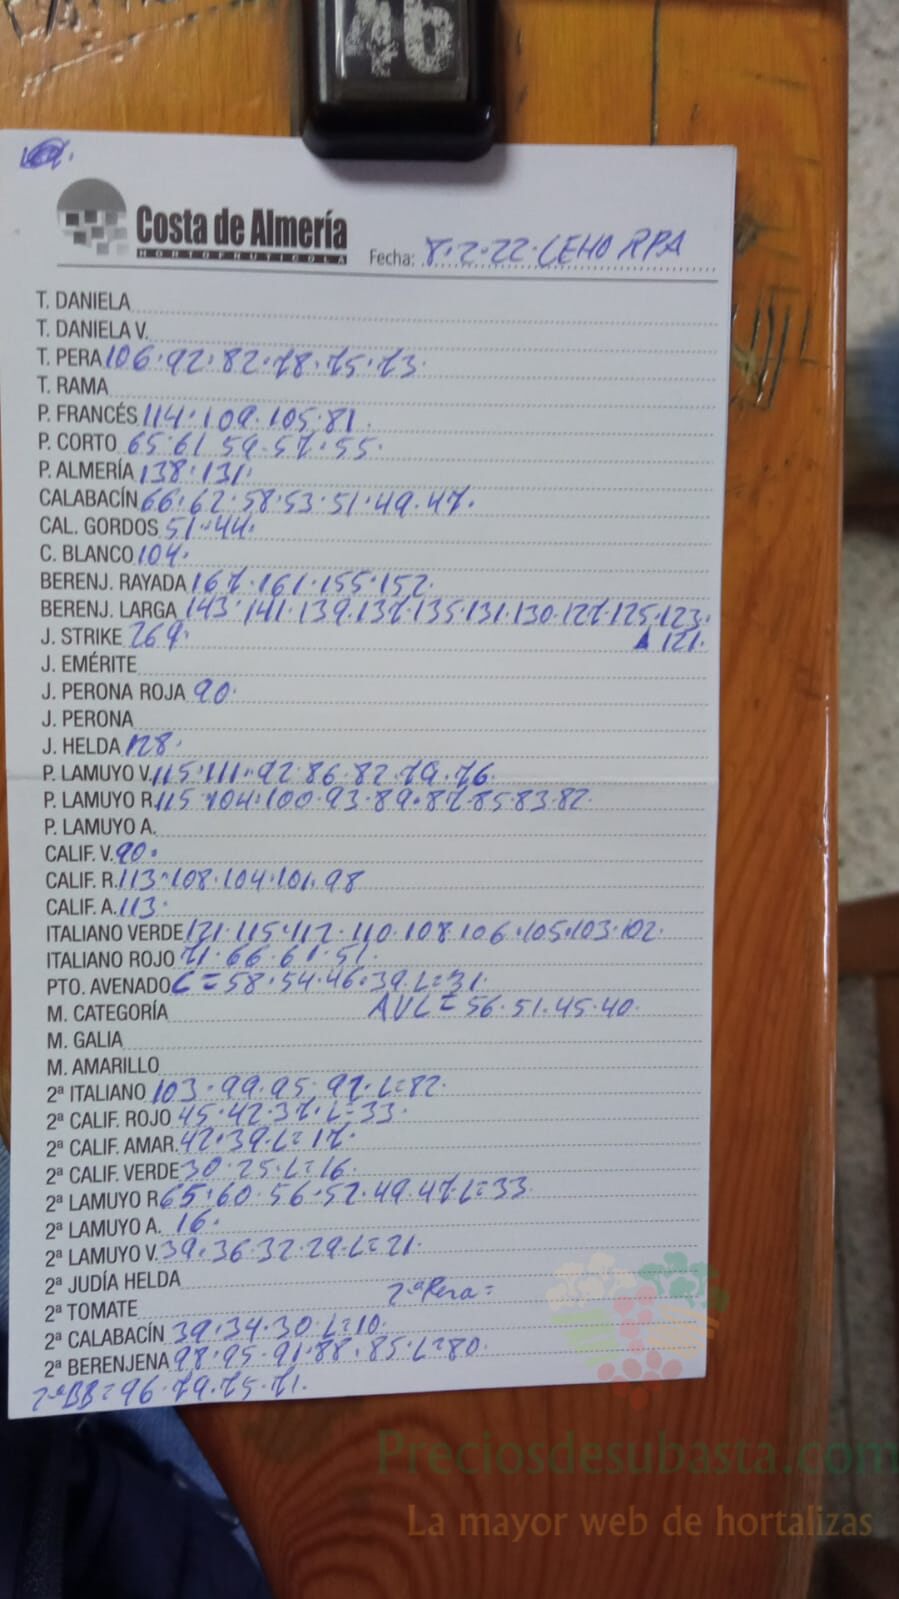 46
Costa de Almería
HORTOFRUTICOLA
Fecha: 8.2.22. LEHO RPA
T. DANIELA
T. DANIELA V.
T. PERA 106.92.82.78.75.73.
T. RAMA
P. FRANCÉS 114.109.105.81.
P. CORTO 65.61.59.57.55.
P. ALMERÍA 138.131.
CALABACÍN 66.62.58.53.51.49.47.
CAL. GORDOS 51.44.
C. BLANCO 104.
BERENJ. RAYADA 167.161.155.152.
BERENJ. LARGA 143.141.139.137.135.131.130.127.125.123.
J. STRIKE 269. 121.
J. EMÉRITE
J. PERONA ROJA 90.
J. PERONA
J. HELDA 128.
P. LAMUYO V. 115.111.92.86.82.79.76.
P. LAMUYO R. 115.104.100.93.89.87.85.83.82.
P. LAMUYO A.
CALIF. V. 90.
CALIF. R. 113.108.104.101.98
CALIF. A. 113.
ITALIANO VERDE 121.115.112.110.108.106.105.103.102.
ITALIANO ROJO 71.66.61.51.
PTO. AVENADO C=58.54.46.39.L=31.
M. CATEGORÍA AVL=56.51.45.40.
M. GALIA
M. AMARILLO
2ª ITALIANO 103.99.95.92.L=82.
2ª CALIF. ROJO 45.42.37.L=33.
2ª CALIF. AMAR. 42.39.L=17.
2ª CALIF. VERDE 30.25.L=16.
2ª LAMUYO R 65.60.56.52.49.47.L=33.
2ª LAMUYO A. 16.
2ª LAMUYO V. 39.36.32.29.L=21.
2ª JUDÍA HELDA
2ª TOMATE 2ªPera=
2ª CALABACÍN 39.34.30.L=10.
2ª BERENJENA 98.95.91.88.85.L=80.
2ªBB=96.79.75.71.
Preciosdesubasta.com
La mayor web de hortalizas